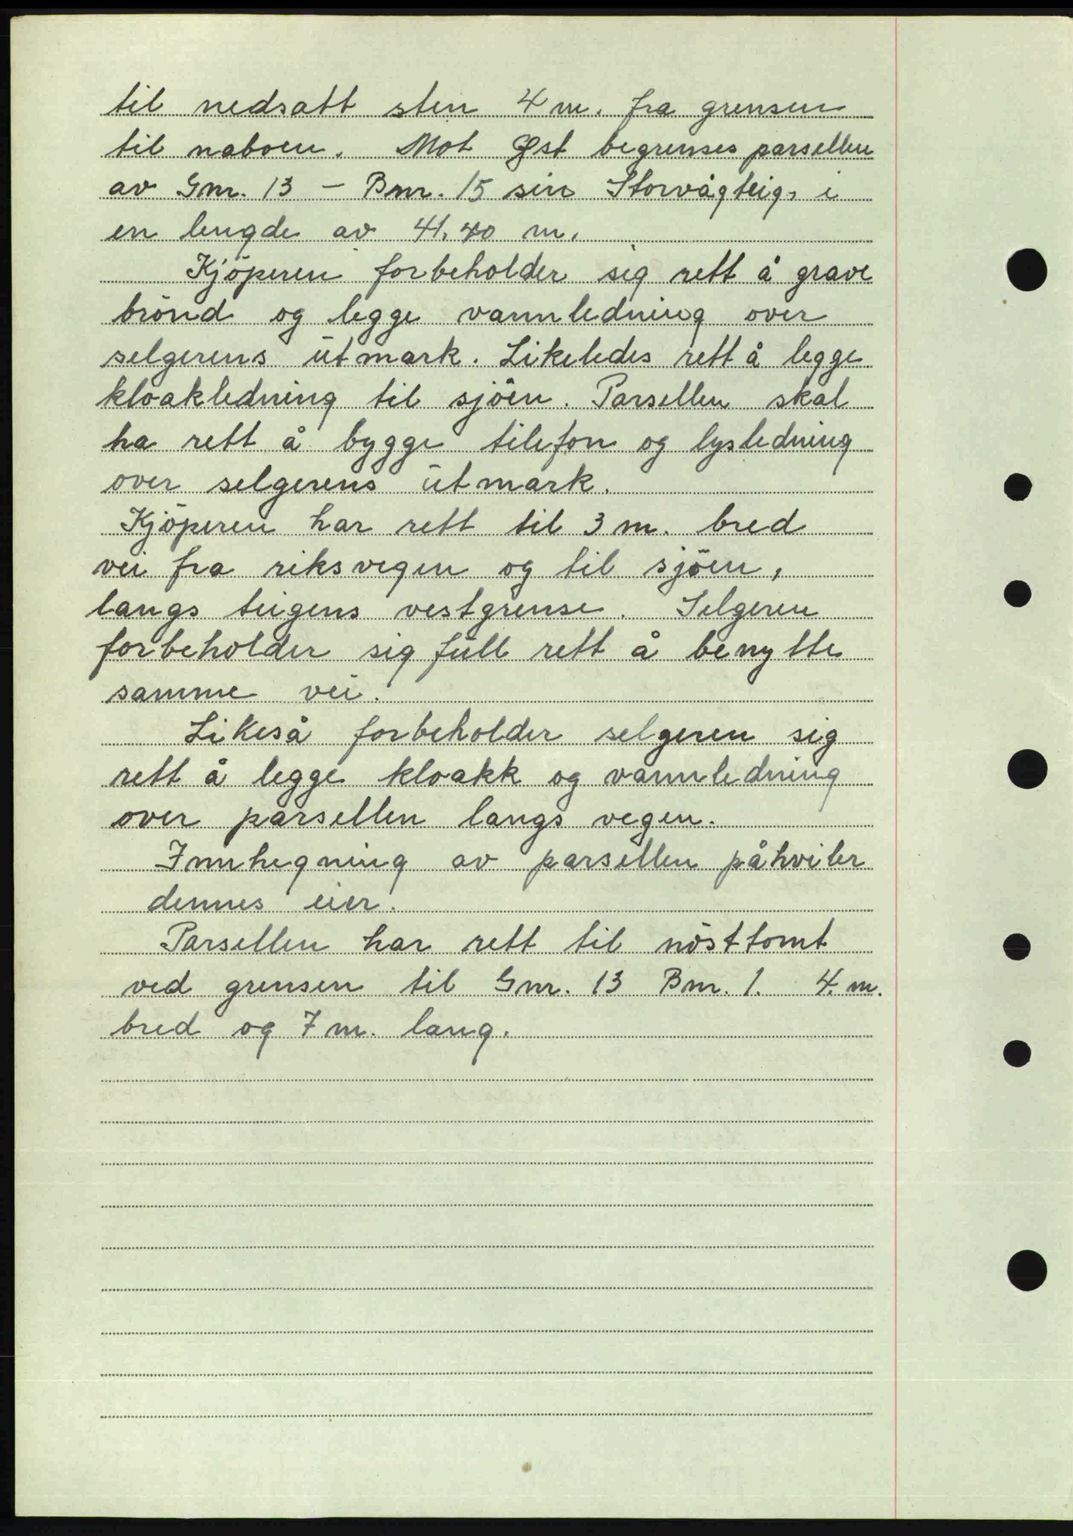 til nedsatt sten 4 m. fra grensen
til naboen. Mot Øst begrenses parsellen
av Gnr. 13 – Bnr. 15 sin Storvågteig, i
en lengde av 41,40 m.
Kjöperen forbeholder sig rett å grave
brönd og legge vannledning over
selgerens utmark. Likeledes rett å legge
kloakledning til sjöen. Parsellen skal
ha rett å bygge telefon og lysledning
over selgerens utmark.
Kjöperen har rett til 3 m. bred
vei fra riksvegen og til sjöen,
langs teigens vestgrense. Selgeren
forbeholder sig full rett å benytte
samme vei.
Likeså forbeholder selgeren sig
rett å legge kloakk og vannledning
over parsellen langs vegen.
Innhegning av parsellen påhviler
dennes eier.
Parsellen har rett til nösttomt
ved grensen til Gnr. 13 Bnr. 1. 4. m.
bred og 7 m. lang.